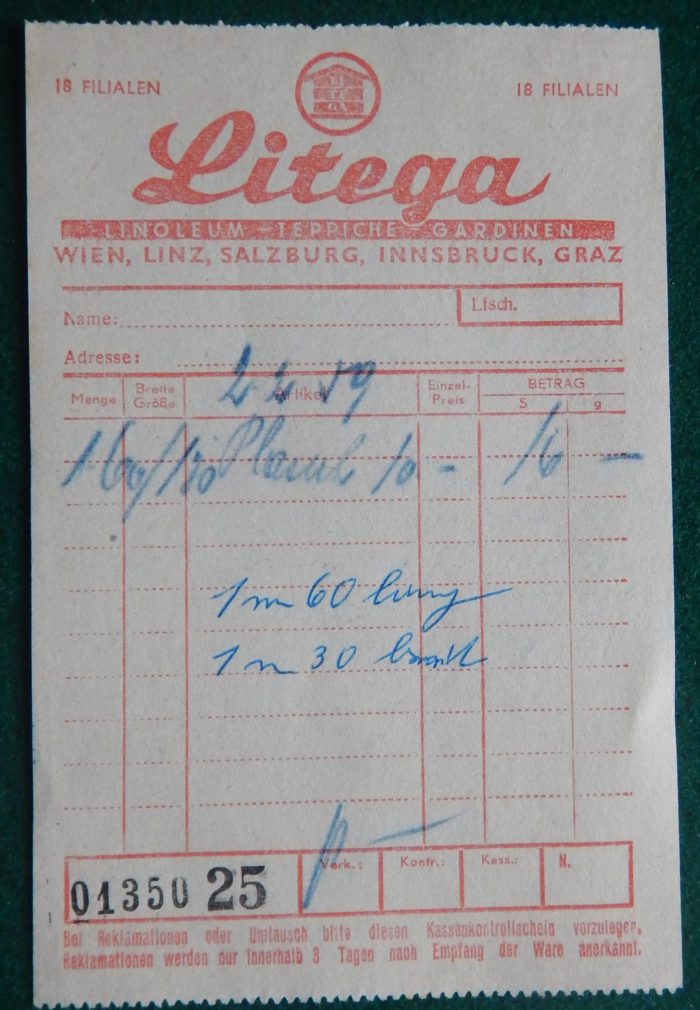 18 FILIALEN 18 FILIALEN
LI
TE
GA
Litega
LINOLEUM - TEPPICHE - GARDINEN
WIEN, LINZ, SALZBURG, INNSBRUCK, GRAZ
Name: Lfsch.
Adresse:
2 2 59
Menge Breite Größe Artikel Einzel-Preis BETRAG S g
160/130 10 - 16 -
1 m 60 lang
1 m 30 breit
Verk.: Kontr.: Kass.: N.
01350 25
Bei Reklamationen oder Umtausch bitte diesen Kassenkontrollschein vorzulegen.
Reklamationen werden nur innerhalb 3 Tagen nach Empfang der Ware anerkannt.